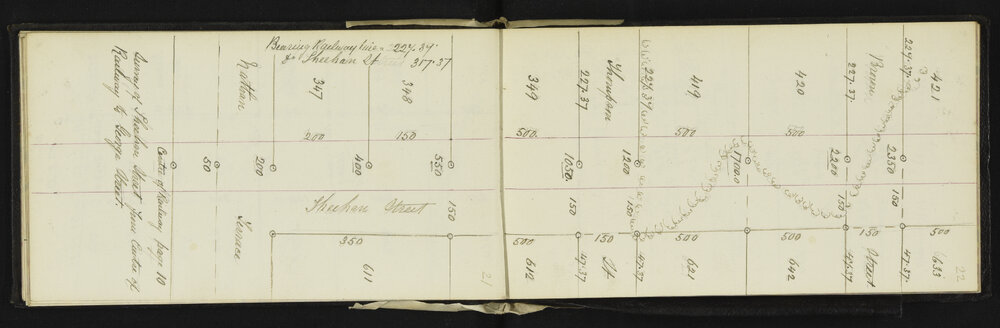 Survey of Sheehan Street from Centre of
Railway to George Street
Centre of Railway page 10
Bearing Railway line 227.37
do Sheehan St 317.37
Nathan
Terrace
347
348
200
150
50
200
400
550
Sheehan Street
150
350
611
21
349
227.37
Thompson
227.37
419
420
227.37
Browne
227.37
421
500
500
500
1050
1200
1700.0
2200
2350
150
150
150
150
500
150
500
500
150
500
612
47.37
St
47.37
621
642
47.37
Street
47.37
633
22